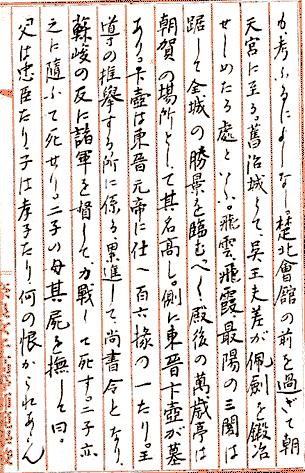 も考ふるによしなし楚北會館の前を過ぎて朝
天宮に至る。舊冶城とて、吳王夫差が佩劍を鍛冶
せしめたる處といふ。飛雲飛霞最陽の三閣は
踞して全城の勝景を臨むべく、殿後の萬歲亭は
朝賀の場所として其名高し。側に東晉卞壼が墓
あり。卞壼は東晉元帝に仕へ百六掾の一たり。王
導の推擧する所に係る。累進して尚書令となり、
蘇峻の反に諸軍を督して、力戰して死す。二子亦
之に隨ふて死せり。二子の母其屍を撫して曰。
父は忠臣たり、子は孝子たり、何の恨かこれあらん